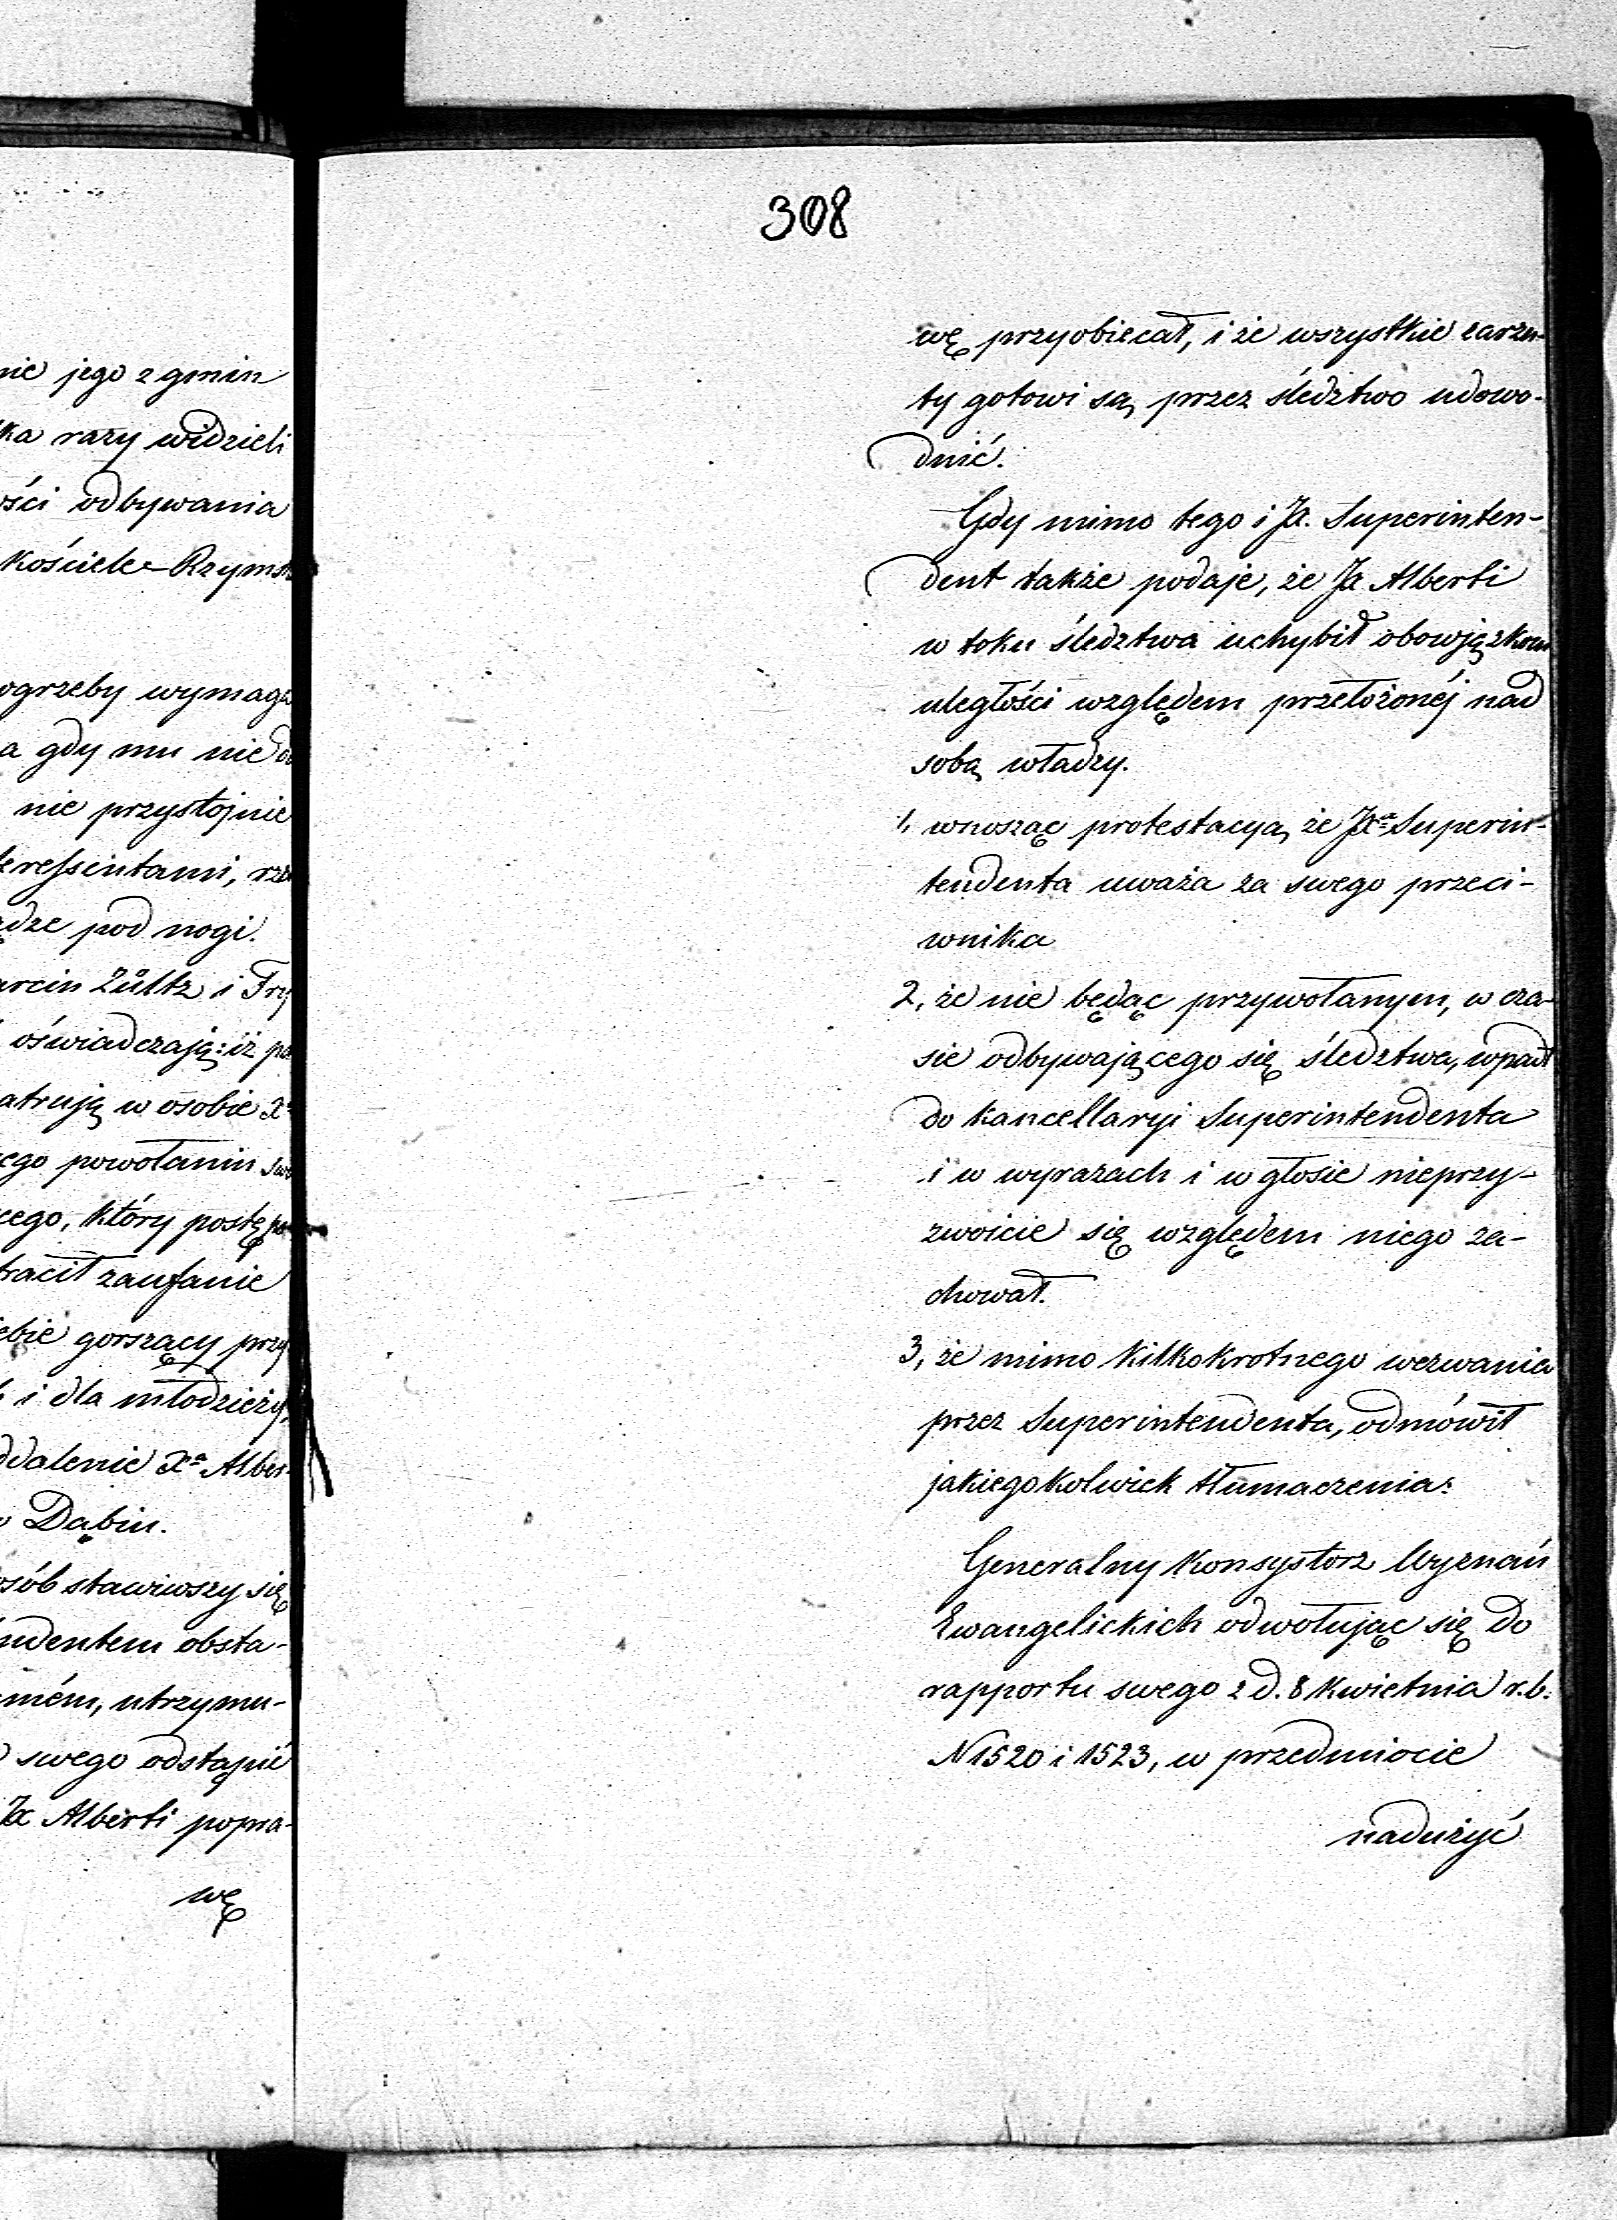 nie jego z gmin
ka razy widzieli
ości odbywania
Kościele Rzyms
ogrzeby wymaga
a gdy mu nie do
nie przystojnie
teressentami, rzu
ądze pod nogi.
arcin Zültz i Fry
oświadczają: iż po
atrują w osobie Xa
ego powołaniu swo
cego, który postępo
tracił zaufanie
ebie gorszący przy
i dla młodzieży,
ddalenie Xa Alber-
Dąbiu.
osób stawiwszy się
ndentem obsta-
mém, utrzymu-
swego odstąpić
JX Alberti popra-
wę
308
wę przyobiecał, i że wszystkie zarzu-
ty gotowi są, przez śledztwo udowo-
dnić.
Gdy mimo tego i JX. Superinten-
dent także podaje, że JX Alberti
w toku śledztwa uchybił obowjązkom
uległości względem przełożonéj nad
sobą władzy.
1, wnosząc protestacyą, że JXa Superin-
tendenta uważa za swego przeci-
wnika
2, że nie będąc przywołanym, w cza-
sie odbywającego się śledztwa, wpadł
do kancellaryi Superintendenta
i w wyrazach i w głosie nieprzy-
zwoicie się względem niego za-
chował.
3, że mimo kilkokrotnego wezwania
przez Superintendenta, odmówił
jakiegokolwiek tłumaczenia:
Generalny Konsystorz Wyznań
Ewangelickich odwołując się do
rapportu swego z d. 8 Kwietnia r.b:
N 1520 i 1523, w przedmiocie
nadużyć